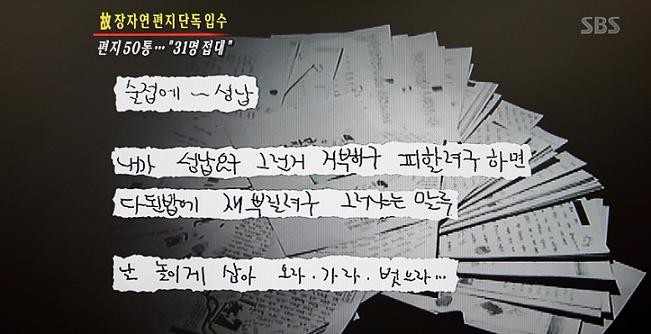 故 장자연 편지 단독 입수
편지 50통… "31명 접대"
SBS
술접에 ~ 성납
내가 성납요구 그런거 거부하구 피할려구 하면
다된밥에 재뿌릴려구 그러냐는 말루
난 놀이게 삼아 오라. 가라. 벗으라…